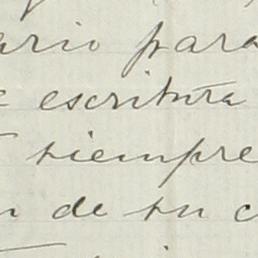 ario para
e escritura
siempre
n de su c